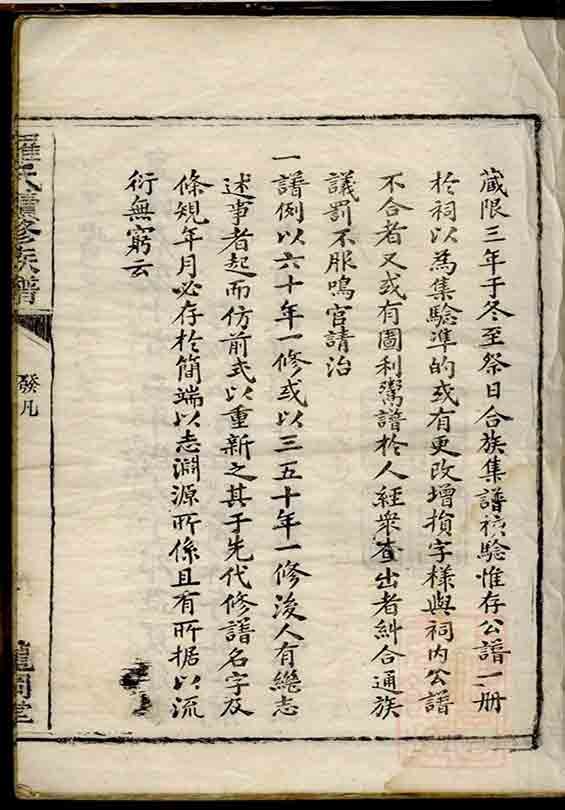 藏限三年于冬至祭日合族集譜核驗惟存公譜一册
於祠以為集驗準的或有更改增損字樣與祠內公譜
不合者又或有圖利鬻譜於人經衆查出者糾合通族
議罰不服鳴官請治
一譜例以六十年一修或以三五十年一修後人有繼志
述事者起而仿前式以重新之其于先代修譜名字及
條規年月必存於簡端以志淵源所係且有所据以流
衍無窮云
羅氏續修族譜
發凡